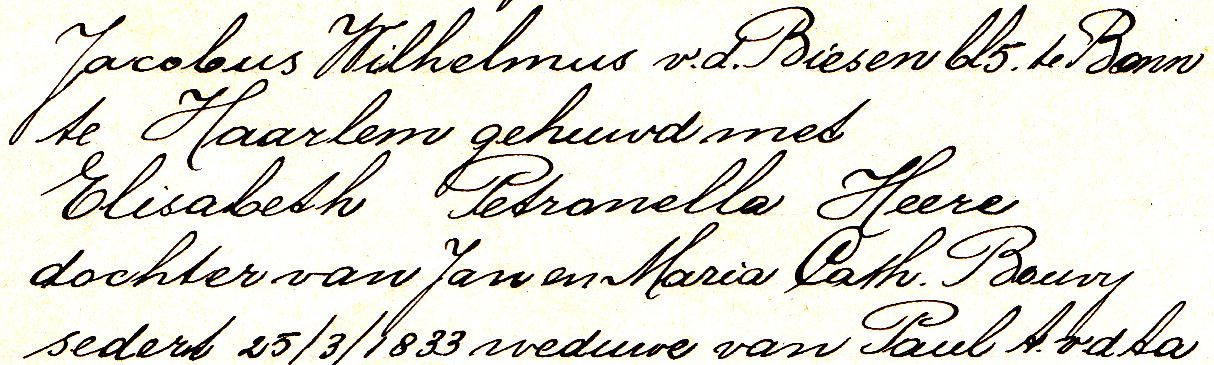 Jacobus Wilhelmus v.d. Biesen blz. te Bonn
te Haarlem gehuwd met
Elisabeth Petronella Heere
dochter van Jan en Maria Cath. Bouvy
sedert 25/3/1833 weduwe van Paul